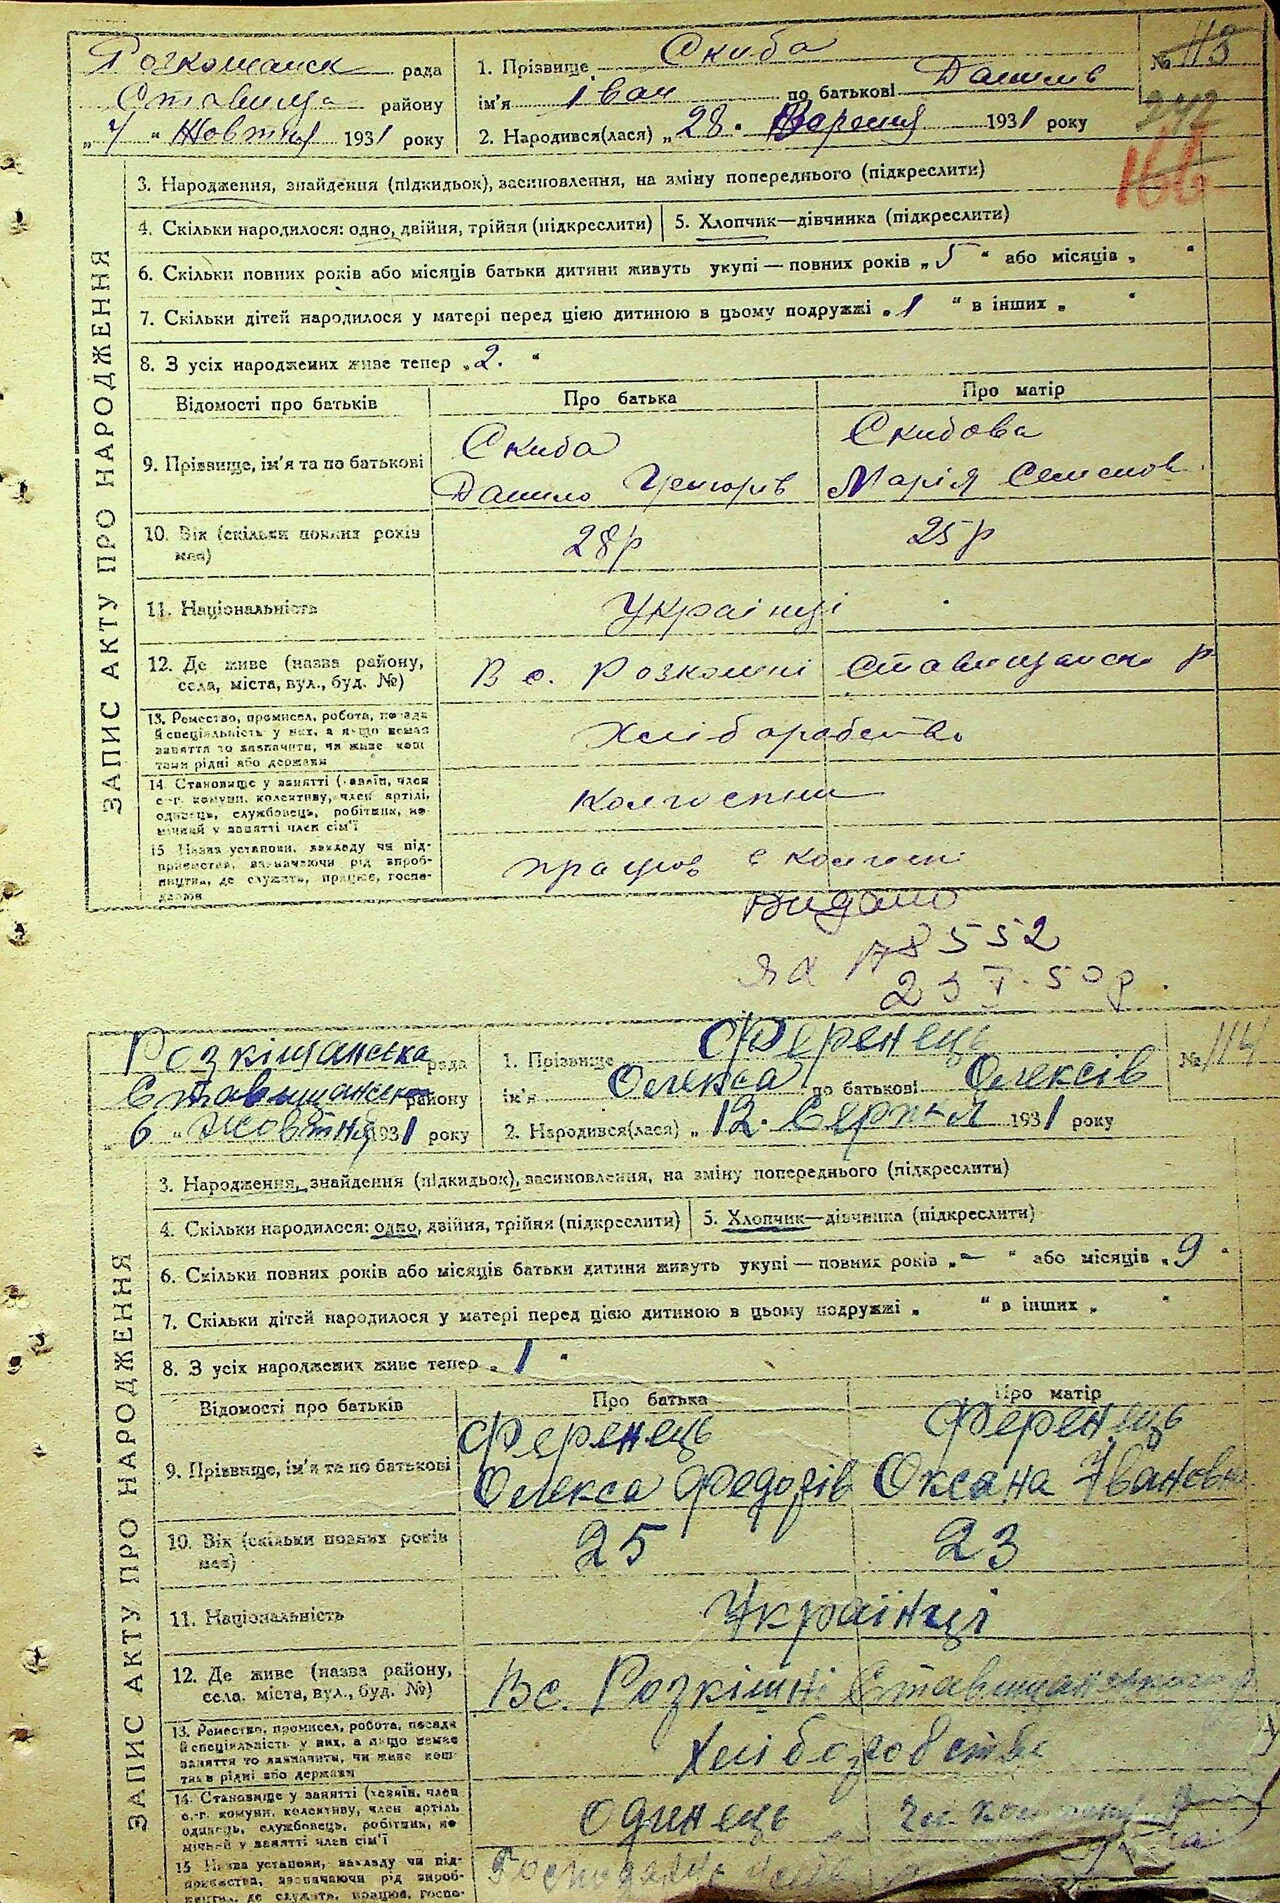 Розкошанск рада
Ставища району
„7“ Жовтня 1931 року
1. Прізвище Скиба
ім'я Іван по батькові Данилів
2. Народився(лася) „28. Вересня 1931 року
№ 113
242
166
ЗАПИС АКТУ ПРО НАРОДЖЕННЯ
3. Народження, знайдення (підкидьок), засиновлення, на зміну попереднього (підкреслити)
4. Скільки народилося: одно, двійня, трійня (підкреслити)
5. Хлопчик—дівчинка (підкреслити)
6. Скільки повних років або місяців батьки дитини живуть укупі — повних років „5“ або місяців „ “
7. Скільки дітей народилося у матері перед цією дитиною в цьому подружжі „1“ в інших „ “
8. З усіх народжених живе тепер „2.“
Відомості про батьків
Про батька
Про матір
9. Прізвище, ім'я та по батькові
Скиба
Данило Григорів
Скибова
Марія Семенов
10. Вік (скільки повних років
має)
28р
25р
11. Національність
Українці
12. Де живе (назва району,
села, міста, вул., буд. №)
В с. Розкошні Ставищанськ р
13. Ремество, промисел, робота, посада
й спеціяльність у них, а якщо немає
заняття то зазначити, чи живе кош
тами рідні або держави
Хліборобство
14. Становище у занятті (хазяїн, член
с-г. комуни, колективу, член артілі,
одинець, службовець, робітник, по-
мічний у занятті член сім'ї
Колгоспни
15 Назва установи, закладу чи під-
приємства, зазначаючи рід вироб-
ництва, де служить, працює, госпо-
дарює
працює в колгоспі
Видано
78552
50р.
Розкішанська рада
Ставищанськ району
„6“ Жовтня 1931 року
1. Прізвище Ференець
ім'я Олекса по батькові Олексів
2. Народився(лася) „12. Серпня 1931 року
№ 114
ЗАПИС АКТУ ПРО НАРОДЖЕННЯ
3. Народження, знайдення (підкидьок), засиновлення, на зміну попереднього (підкреслити)
4. Скільки народилося: одно, двійня, трійня (підкреслити)
5. Хлопчик—дівчинка (підкреслити)
6. Скільки повних років або місяців батьки дитини живуть укупі — повних років „–“ або місяців „9“
7. Скільки дітей народилося у матері перед цією дитиною в цьому подружжі „ “ в інших „ “
8. З усіх народжених живе тепер „1“
Відомості про батьків
Про батька
Про матір
9. Прізвище, ім'я та по батькові
Ференець
Олекса Федорів
Ференець
Оксана Івановна
10. Вік (скільки повних років
має)
25
23
11. Національність
Українці
12. Де живе (назва району,
села, міста, вул., буд. №)
В с. Розкішні Ставищанського р
13. Ремество, промисел, робота, посада
й спеціяльність у них, а якщо немає
заняття то зазначити, чи живе кош-
тами рідні або держави
Хліборобство
14. Становище у занятті (хазяїн, член
с.-г. комуни, колективу, член артіль
одинець, службовець, робітник, по
мічний у занятті член сім'ї
одинець
15 Назва установи, закладу чи під-
приємства, зазначаючи рід вироб-
ництва, де служить, працює, госпо-